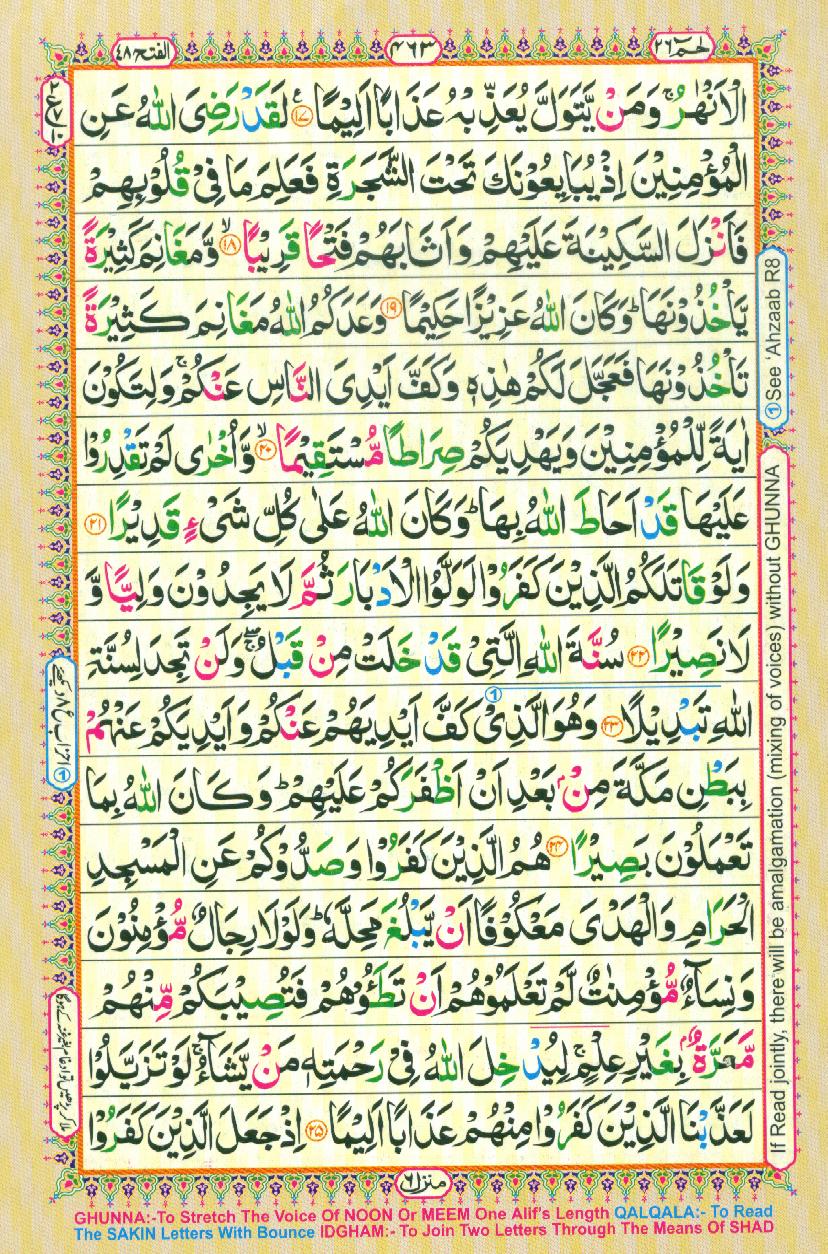 الفتح ٤٨
٤٦٣
حٰمٓ ٢٦
الْاَنْهٰرُ ۚ وَمَنْ يَّتَوَلَّ يُعَذِّبْهُ عَذَابًا اَلِيْمًا ﴿١٧﴾ لَقَدْ رَضِىَ اللّٰهُ عَنِ
الْمُؤْمِنِيْنَ اِذْ يُبَايِعُوْنَكَ تَحْتَ الشَّجَرَةِ فَعَلِمَ مَا فِىْ قُلُوْبِهِمْ
فَاَنْزَلَ السَّكِيْنَةَ عَلَيْهِمْ وَاَثَابَهُمْ فَتْحًا قَرِيْبًا ﴿١٨﴾ۙ وَّمَغَانِمَ كَثِيْرَةً
يَّاْخُذُوْنَهَا ؕ وَكَانَ اللّٰهُ عَزِيْزًا حَكِيْمًا ﴿١٩﴾ وَعَدَكُمُ اللّٰهُ مَغَانِمَ كَثِيْرَةً
تَاْخُذُوْنَهَا فَعَجَّلَ لَكُمْ هٰذِهٖ وَكَفَّ اَيْدِىَ النَّاسِ عَنْكُمْ ۚ وَلِتَكُوْنَ
اٰيَةً لِّلْمُؤْمِنِيْنَ وَيَهْدِيَكُمْ صِرَاطًا مُّسْتَقِيْمًا ﴿٢٠﴾ۙ وَّاُخْرٰى لَمْ تَقْدِرُوْا
عَلَيْهَا قَدْ اَحَاطَ اللّٰهُ بِهَا ؕ وَكَانَ اللّٰهُ عَلٰى كُلِّ شَىْءٍ قَدِيْرًا ﴿٢١﴾
وَلَوْ قَاتَلَكُمُ الَّذِيْنَ كَفَرُوْا لَوَلَّوُا الْاَدْبَارَ ثُمَّ لَا يَجِدُوْنَ وَلِيًّا وَّ
لَا نَصِيْرًا ﴿٢٢﴾ سُنَّةَ اللّٰهِ الَّتِىْ قَدْ خَلَتْ مِنْ قَبْلُ ۖۚ وَلَنْ تَجِدَ لِسُنَّةِ
اللّٰهِ تَبْدِيْلًا ﴿٢٣﴾ وَهُوَ الَّذِىْ كَفَّ اَيْدِيَهُمْ عَنْكُمْ وَاَيْدِيَكُمْ عَنْهُمْ
بِبَطْنِ مَكَّةَ مِنْۢ بَعْدِ اَنْ اَظْفَرَكُمْ عَلَيْهِمْ ؕ وَكَانَ اللّٰهُ بِمَا
تَعْمَلُوْنَ بَصِيْرًا ﴿٢٤﴾ هُمُ الَّذِيْنَ كَفَرُوْا وَصَدُّوْكُمْ عَنِ الْمَسْجِدِ
الْحَرَامِ وَالْهَدْىَ مَعْكُوْفًا اَنْ يَّبْلُغَ مَحِلَّهٗ ؕ وَلَوْلَا رِجَالٌ مُّؤْمِنُوْنَ
وَنِسَآءٌ مُّؤْمِنٰتٌ لَّمْ تَعْلَمُوْهُمْ اَنْ تَطَـُٔوْهُمْ فَتُصِيْبَكُمْ مِّنْهُمْ
مَّعَرَّةٌۢ بِغَيْرِ عِلْمٍ ۚ لِيُدْخِلَ اللّٰهُ فِىْ رَحْمَتِهٖ مَنْ يَّشَآءُ ۚ لَوْ تَزَيَّلُوْا
لَعَذَّبْنَا الَّذِيْنَ كَفَرُوْا مِنْهُمْ عَذَابًا اَلِيْمًا ﴿٢٥﴾ اِذْ جَعَلَ الَّذِيْنَ كَفَرُوْا
منزل ٦
① See 'Ahzaab R8
If Read jointly, there will be amalgamation (mixing of voices) without GHUNNA
GHUNNA:-To Stretch The Voice Of NOON Or MEEM One Alif's Length QALQALA:- To Read
The SAKIN Letters With Bounce IDGHAM:- To Join Two Letters Through The Means Of SHAD